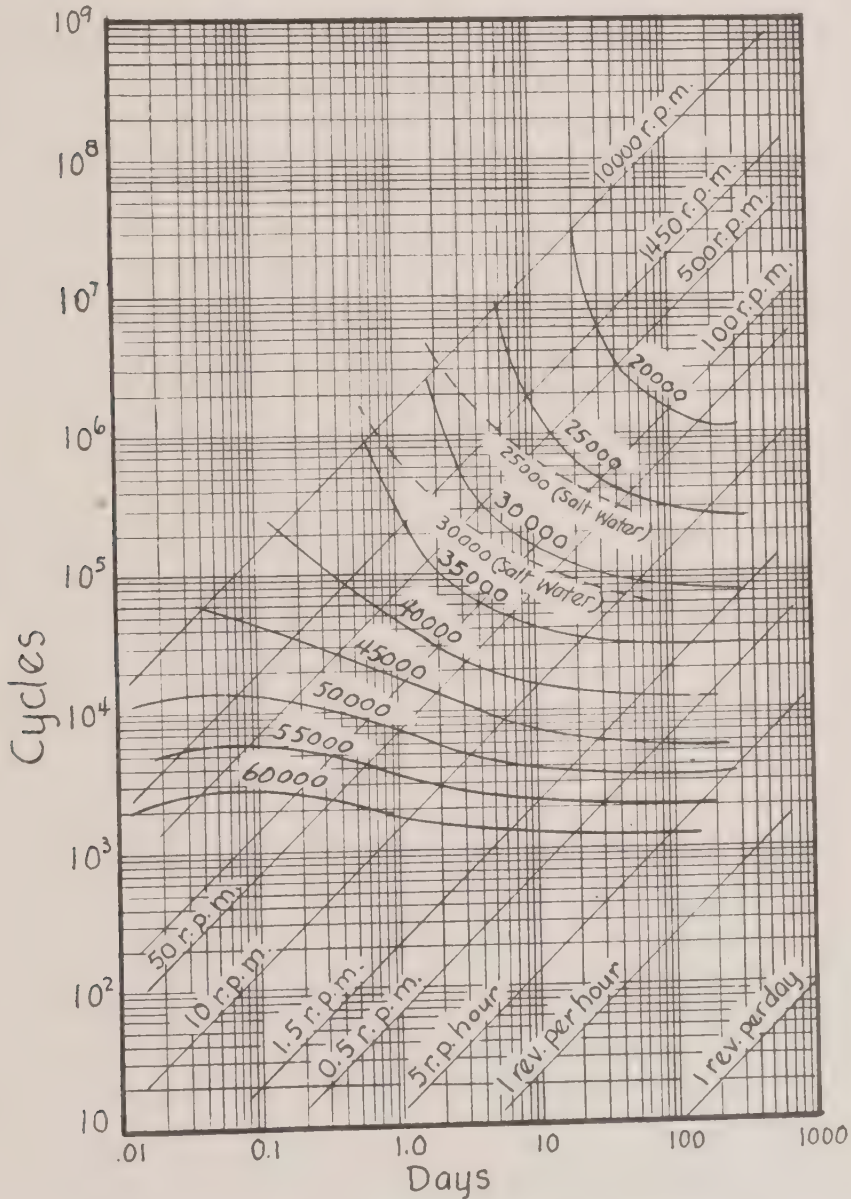 10⁹
10⁸
10⁷
10⁶
10⁵
10⁴
10³
10²
10
Cycles
10000 r.p.m.
1450 r.p.m.
500 r.p.m.
100 r.p.m.
20000
25000
25000 (Salt Water)
30000
30000 (Salt Water)
35000
40000
45000
50000
55000
60000
50 r.p.m.
10 r.p.m.
1.5 r.p.m.
0.5 r.p.m.
5 r.p. hour
1 rev. per hour
1 rev. per day
.01 0.1 1.0 10 100 1000
Days